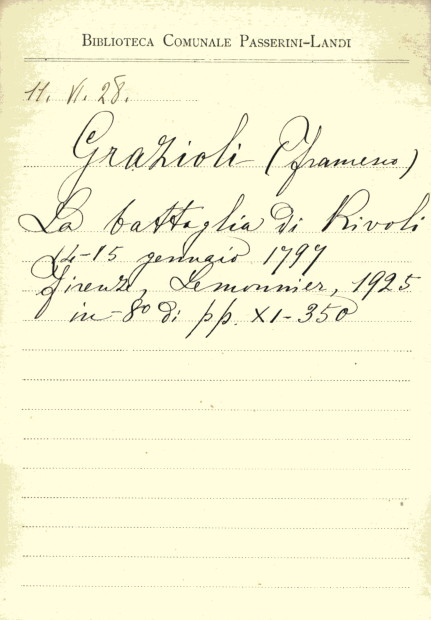 BIBLIOTECA COMUNALE PASSERINI-LANDI
11. VI. 28.
Grazioli (Francesco)
La battaglia di Rivoli
14-15 gennaio 1797
Firenze, Lemonnier, 1925
in-8º di pp. XI-350